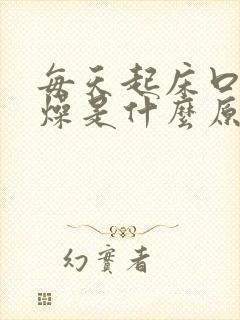 每天起床口
燥是什麼原
幻實者